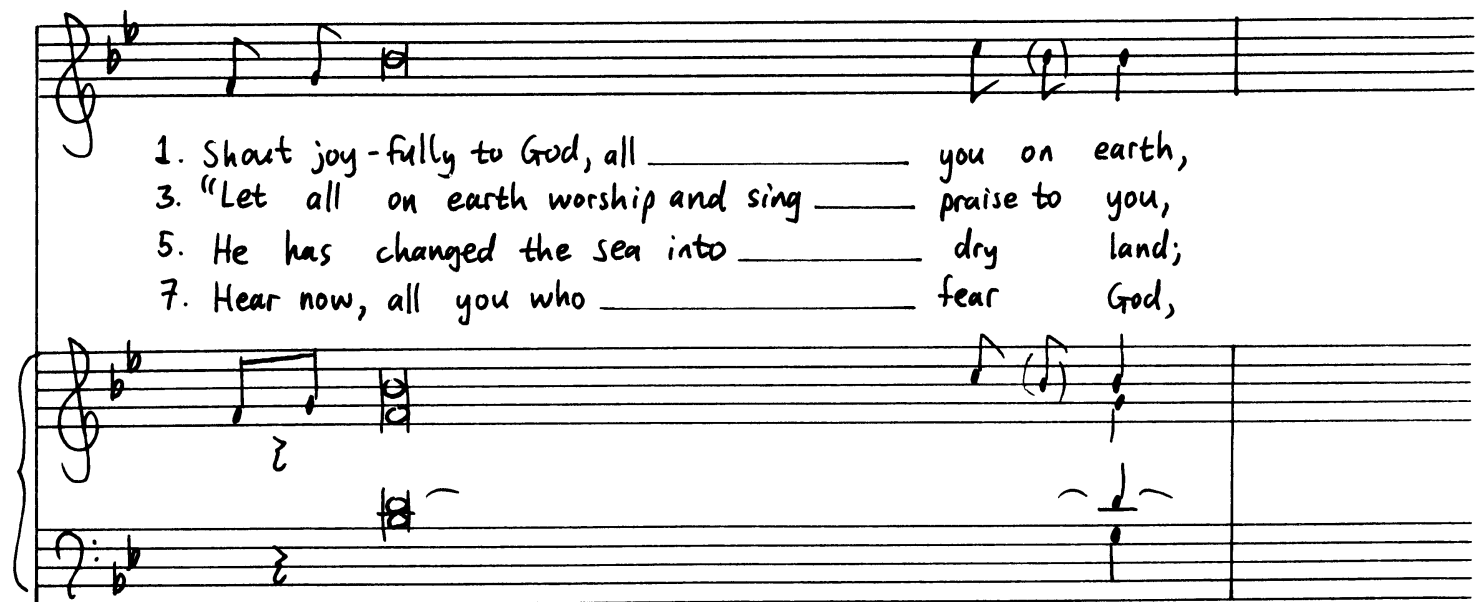 1. Shout joy-fully to God, all ________ you on earth,
3. “Let all on earth worship and sing ___ praise to you,
5. He has changed the sea into ______ dry land;
7. Hear now, all you who __________ fear God,